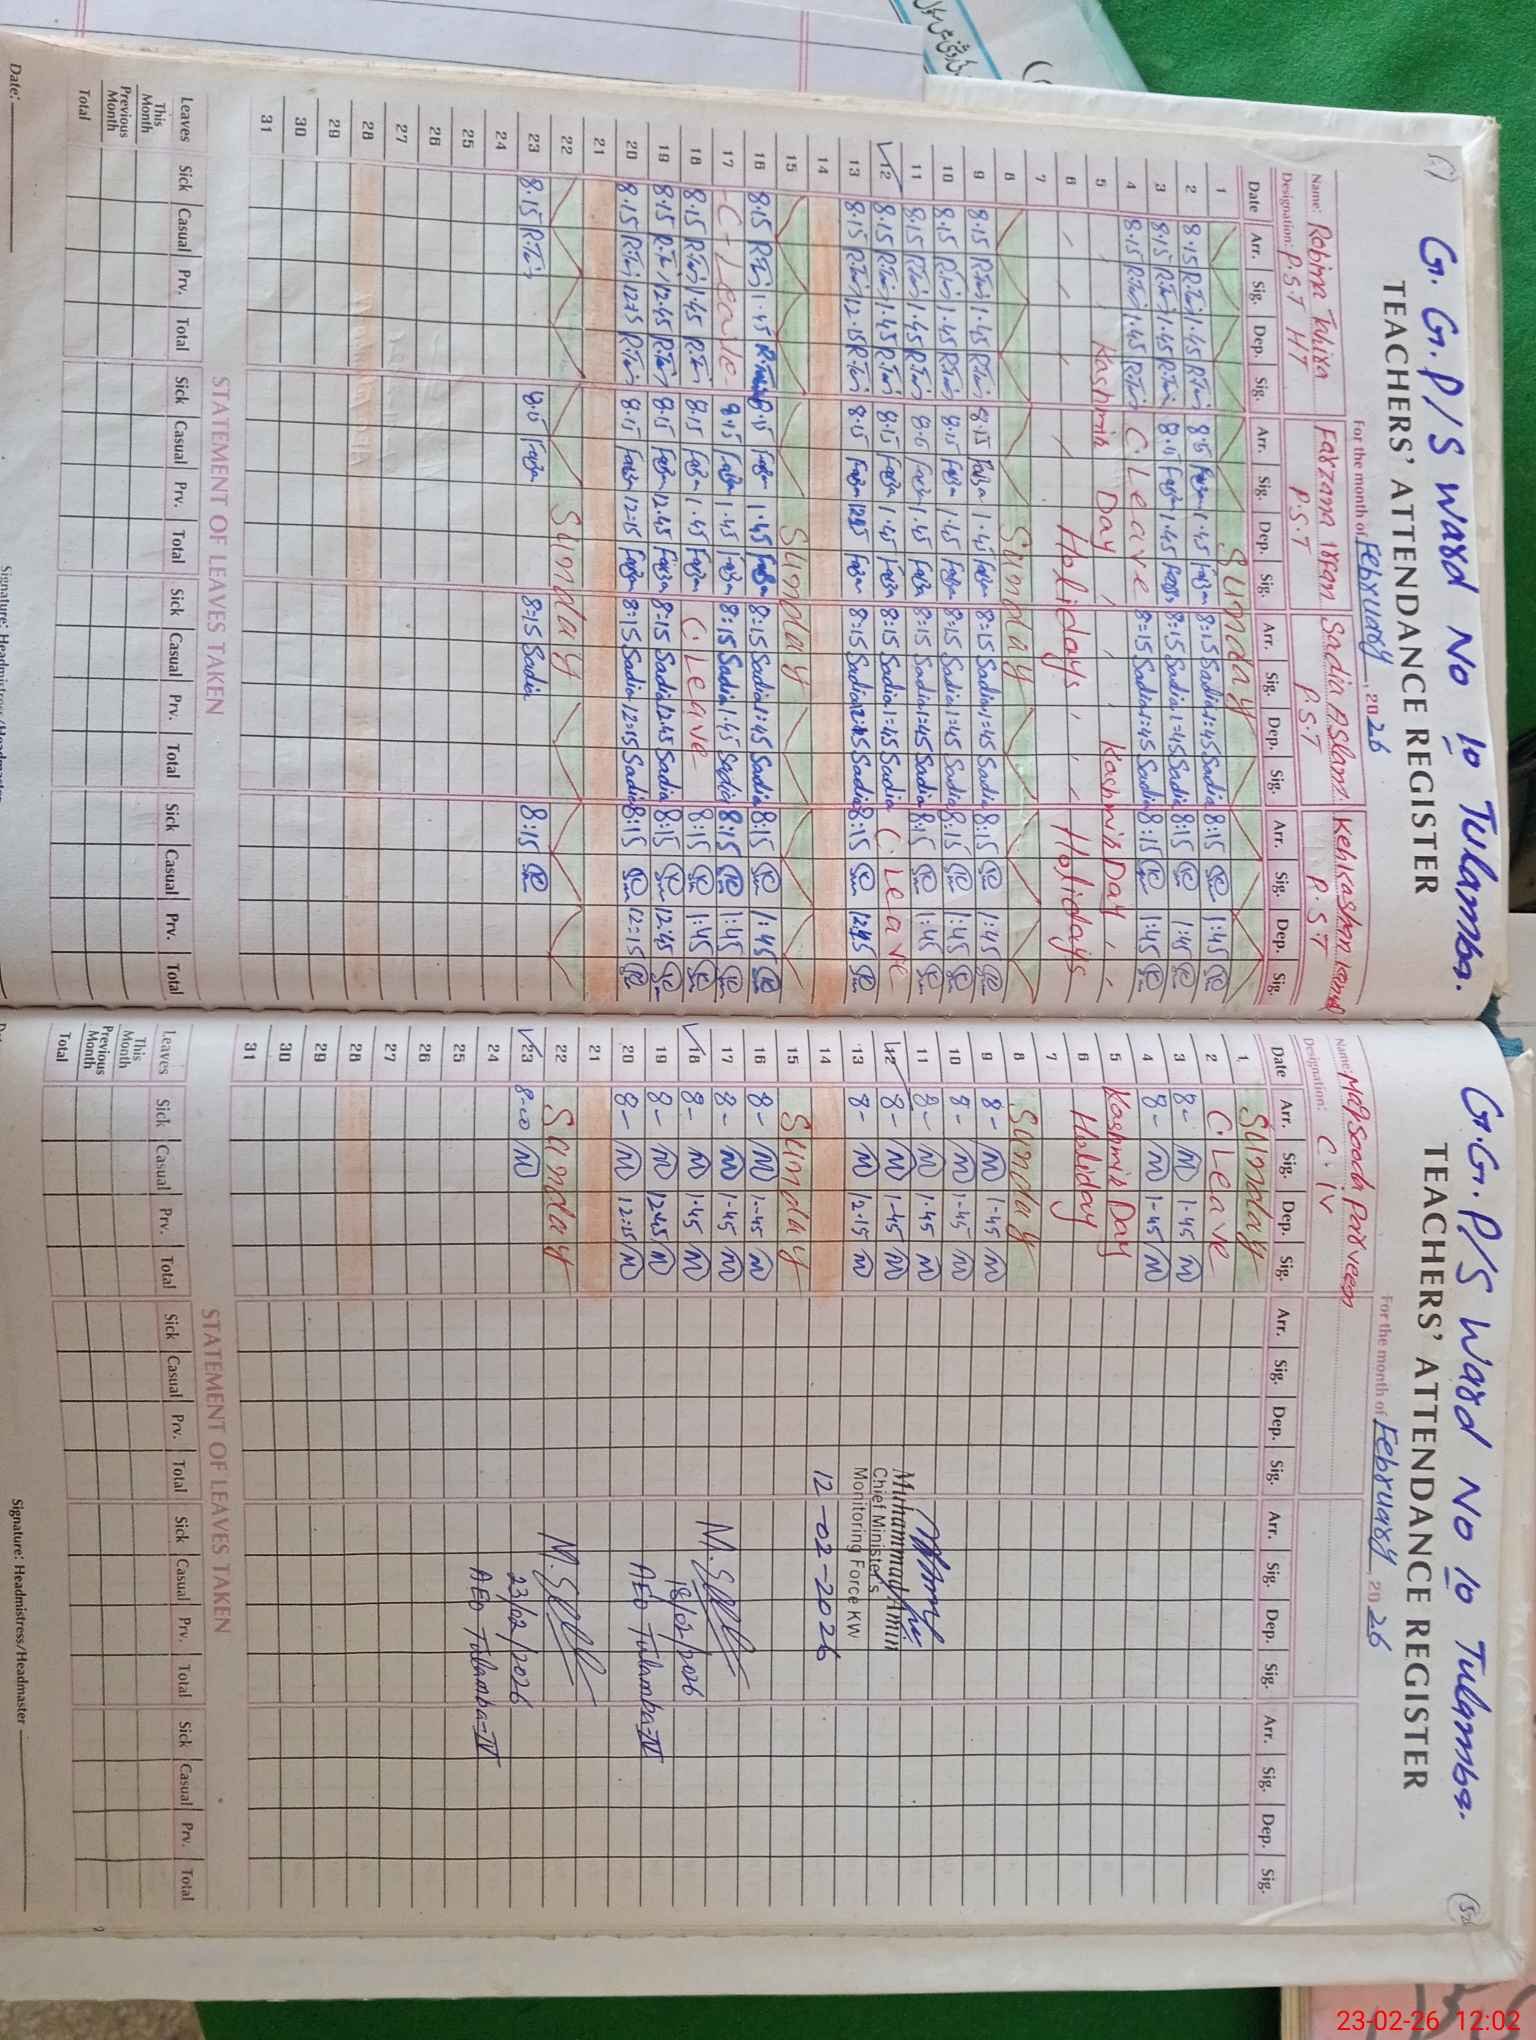 G.G.P/S Ward No 10 Tulamba.
TEACHERS' ATTENDANCE REGISTER
For the month of February, 2026
Name: Robina Tahira
Farzana Irfan
Sadia Aslam
Kehkashan Kanwal
Designation: P.S.T HT
P.S.T
P.S.T
P.S.T
Date Arr. Sig. Dep. Sig. Arr. Sig. Dep. Sig. Arr. Sig. Dep. Sig. Arr. Sig. Dep. Sig.
1 Sunday
2 8.15 R.Tair 1.45 R.Tair 8.15 Farzan 1.45 Farzan 8:15 Sadia 1:45 Sadia 8:15 1:45
3 8.15 R.Tair 1.45 R.Tair 8.15 Farzan 1.45 Farzan 8:15 Sadia 1:45 Sadia 8:15 1:45
4 8.15 R.Tair 1.45 R.Tair C. Leave 8:15 Sadia 1:45 Sadia 8:15 1:45
5 Kashmir Day Kashmir Day
6 Holidays Holidays
7
8 Sunday
9 8.15 R.Tair 1.45 R.Tair 8.15 Farzan 1.45 Farzan 8:15 Sadia 1:45 Sadia 8:15 1:45
10 8.15 R.Tair 1.45 R.Tair 8.15 Farzan 1.45 Farzan 8:15 Sadia 1:45 Sadia 8:15 1:45
11 8.15 R.Tair 1.45 R.Tair 8.15 Farzan 1.45 Farzan 8:15 Sadia 1:45 Sadia 8:15 1:45
12 8.15 R.Tair 1.45 R.Tair 8.15 Farzan 1.45 Farzan 8:15 Sadia 1:45 Sadia C. Leave
13 8.15 R.Tair 12.15 R.Tair 8.15 Farzan Farzan 8:15 Sadia Sadia 8:15
14
15 Sunday
16 8.15 R.Tair 1.45 R.Tair 8.15 Farzan 1.45 Farzan 8:15 Sadia 1:45 Sadia 8:15 1:45
17 -C- Leave- 8.15 Farzan 1.45 Farzan 8:15 Sadia 1.45 Sadia 8:15 1:45
18 8.15 R.Tair 1.45 R.Tair 8.15 Farzan 1.45 Farzan C. Leave 8:15 1:45
19 8.15 R.Tair 12.45 R.Tair 8.15 Farzan 12.45 Farzan 8:15 Sadia 12.45 Sadia 8:15 12:45
20 8.15 R.Tair R.Tair 8.15 Farzan 12:15 Farzan 8:15 Sadia 12:15 Sadia 8:15 12:15
21
22 Sunday
23 8.15 R.Tair 8.15 Farzan 8:15 Sadia 8:15
24
25
26
27
28
29
30
31
STATEMENT OF LEAVES TAKEN
Leaves Sick Casual Prv. Total Sick Casual Prv. Total Sick Casual Prv. Total Sick Casual Prv. Total
This Month
Previous Month
Total
Date:
Signature: Headmistress/Headmaster
G.G.P/S Ward No 10 Tulamba.
TEACHERS' ATTENDANCE REGISTER
For the month of February, 2026
Name: Maqsooda Parveen
Designation: C-IV
Date Arr. Sig. Dep. Sig. Arr. Sig. Dep. Sig. Arr. Sig. Dep. Sig. Arr. Sig. Dep. Sig.
1 Sunday
2 C. Leave
3 8- M 1.45 M
4 8- M 1-45 M
5 Kashmir Day
6 Holiday
7
8 Sunday
9 8- M 1-45 M
10 8- M 1-45 M
11 8- M 1.45 M
12 8- M 1-45 M
13 8- M 12.15 M
14
15 Sunday
16 8- M 1-45 M
17 8- M 1-45 M
18 8- M 1.45 M
19 8- M 12.45 M
20 8- M 12:15 M
21
22 Sunday
23 8-00 M
24
25
26
27
28
29
30
31
Muhammad Amin
Chief Minister's
Monitoring Force KW
12-02-2026
18/02/2026
AEO Tulamba-IV
23/02/2026
AEO Tulamba-IV
STATEMENT OF LEAVES TAKEN
Leaves Sick Casual Prv. Total Sick Casual Prv. Total Sick Casual Prv. Total Sick Casual Prv. Total
This Month
Previous Month
Total
Signature: Headmistress/Headmaster
23-02-26 12:02